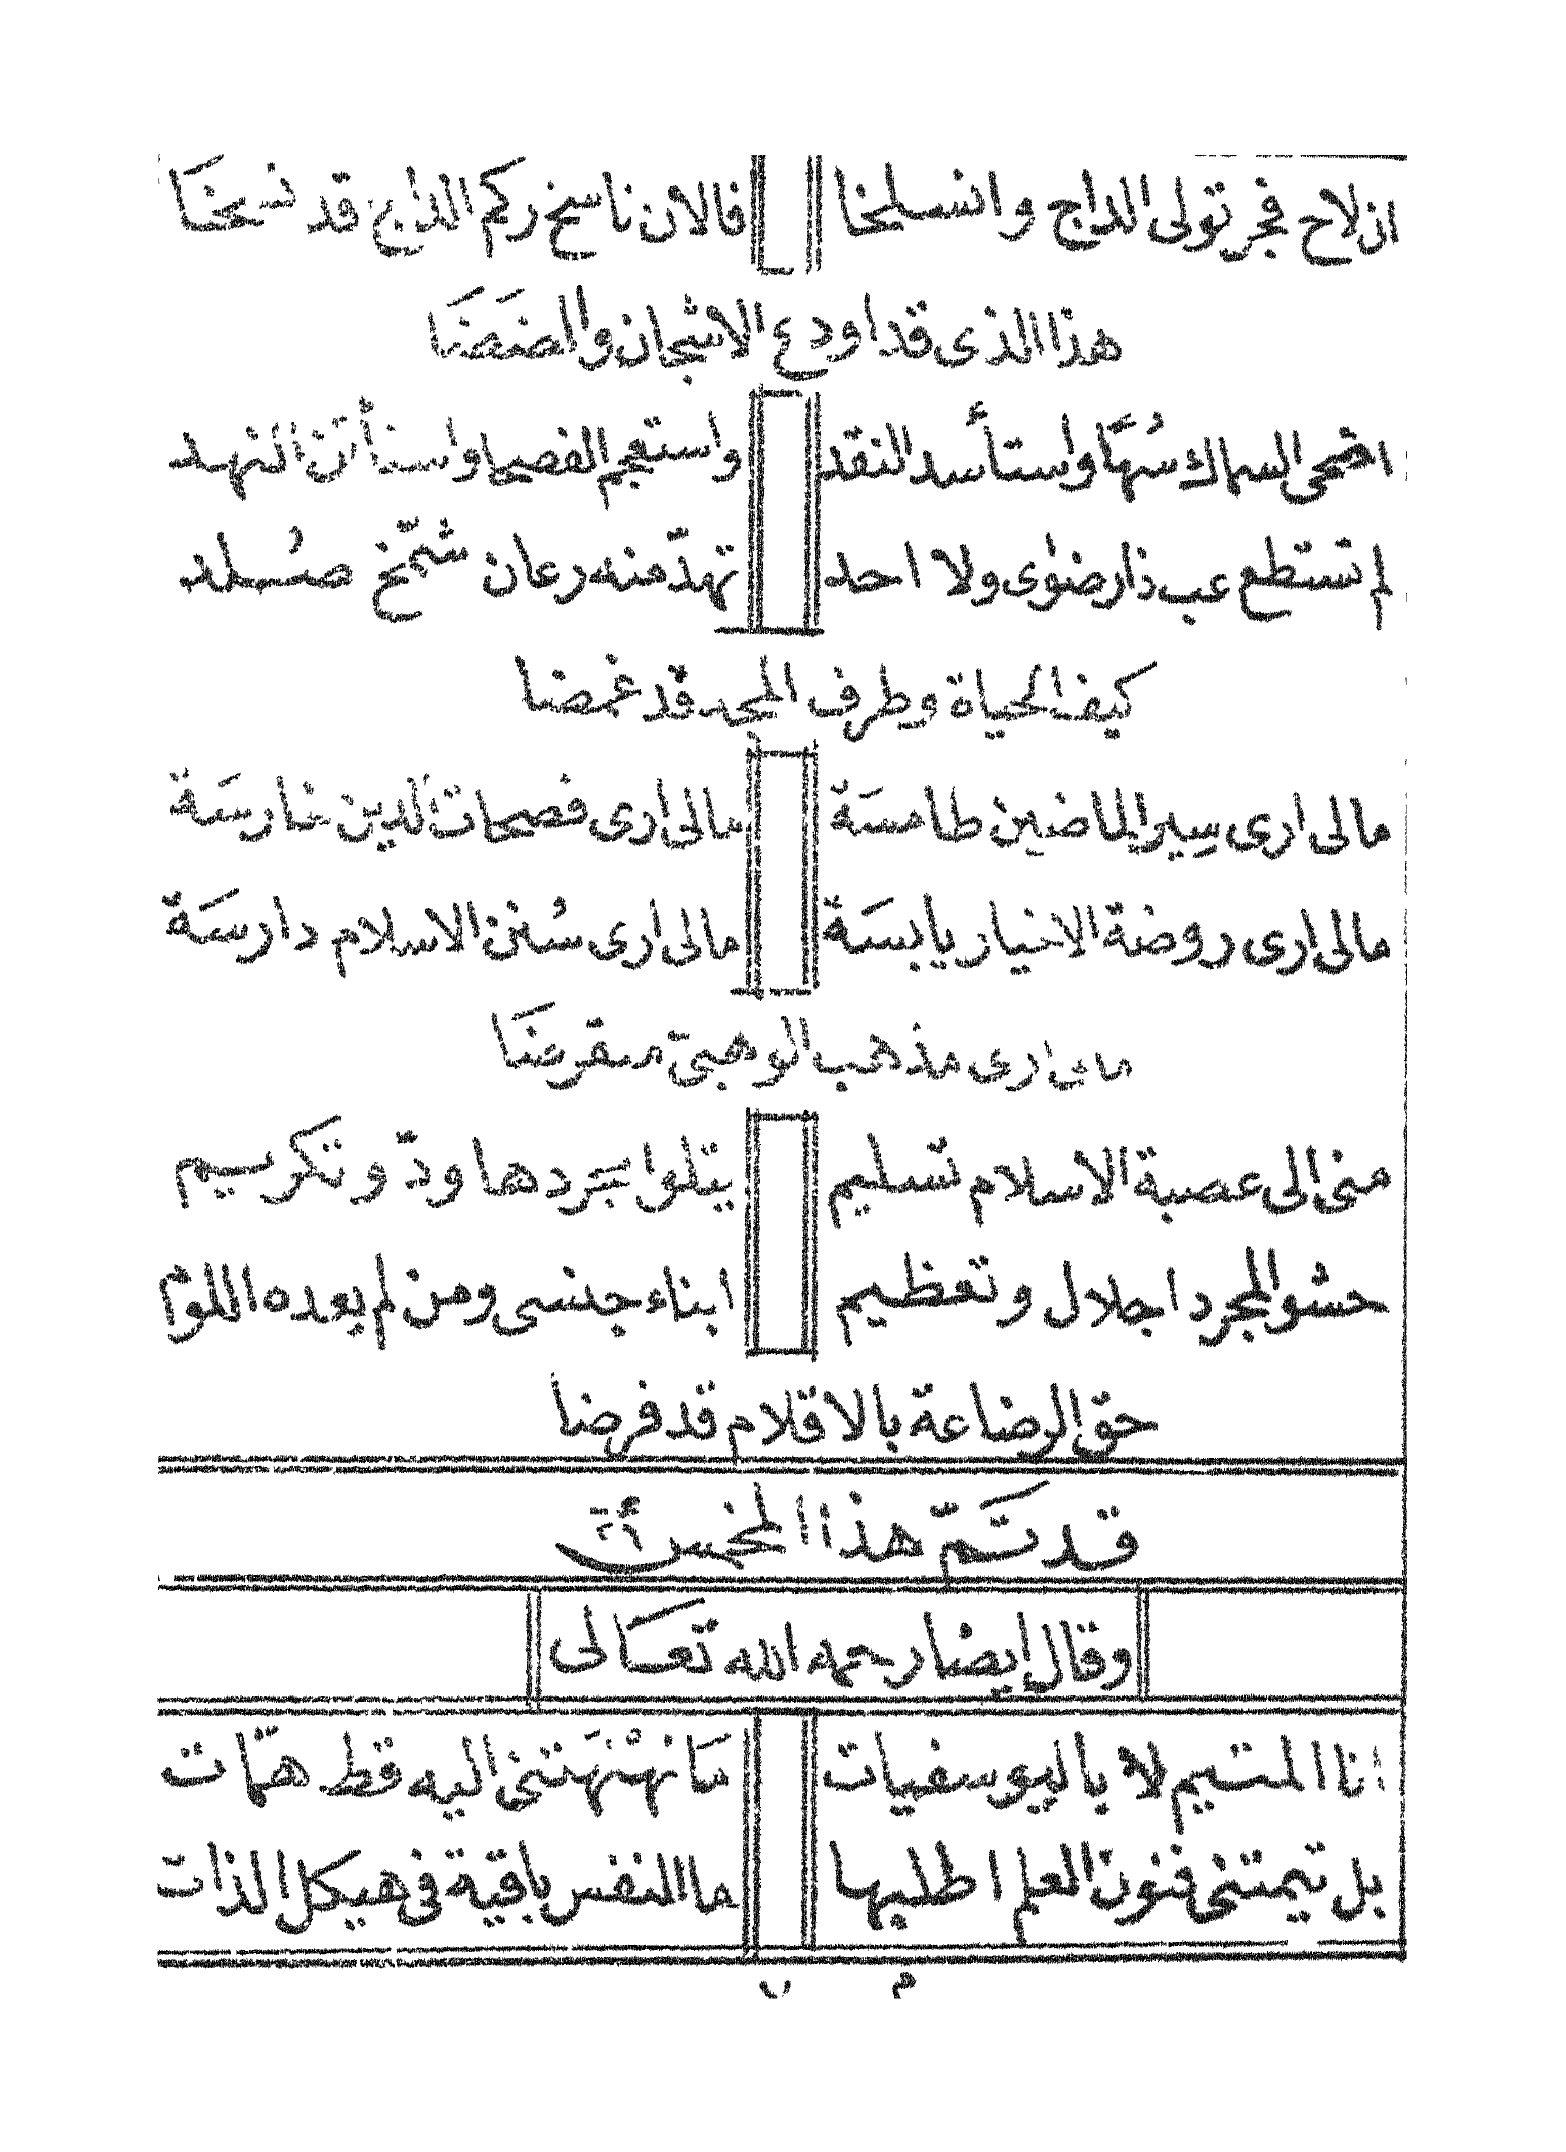 ان لاح فجر تولى الداج وانسلخا فالان ناسخ ركم الداج قد نسخا
هذا الذى قد اودع الاشجان والمضضا
اضحى السماك سُهًا واستأسد النقد واستعجم الفصحا واستأتن النهد
لم تستطع عب ذا رضوى ولا احد تهدّ منه رعان شمّخ صُلد
كيف الحياة وطرف المجد قد غمضا
مالى ارى سِير الماضين طامسَة مالى ارى فصحات الدين خارسَة
مالى ارى روضة الاخيار يابسَة مالى ارى سُنن الاسلام دارسَة
مالى ارى مذهب الوهبىّ منقرضَا
منى الى عصبة الاسلام تسليم يتلوا بَردها ودّ وتكريم
حشو المجرد اجلال وتعظيم ابناء جنسى ومن لم يعده اللوم
حق الرضاعة بالاقلام قد فرضا
قد تَمّ هذا المخمس
وقال ايضا رحمه الله تعَالى
انا المتيم لا باليوسفيات مَا نهْنَهَتنى اليه قط همّات
بل تيمتنى فنون العلم اطلبها ما النفس باقية فى هيكل الذات